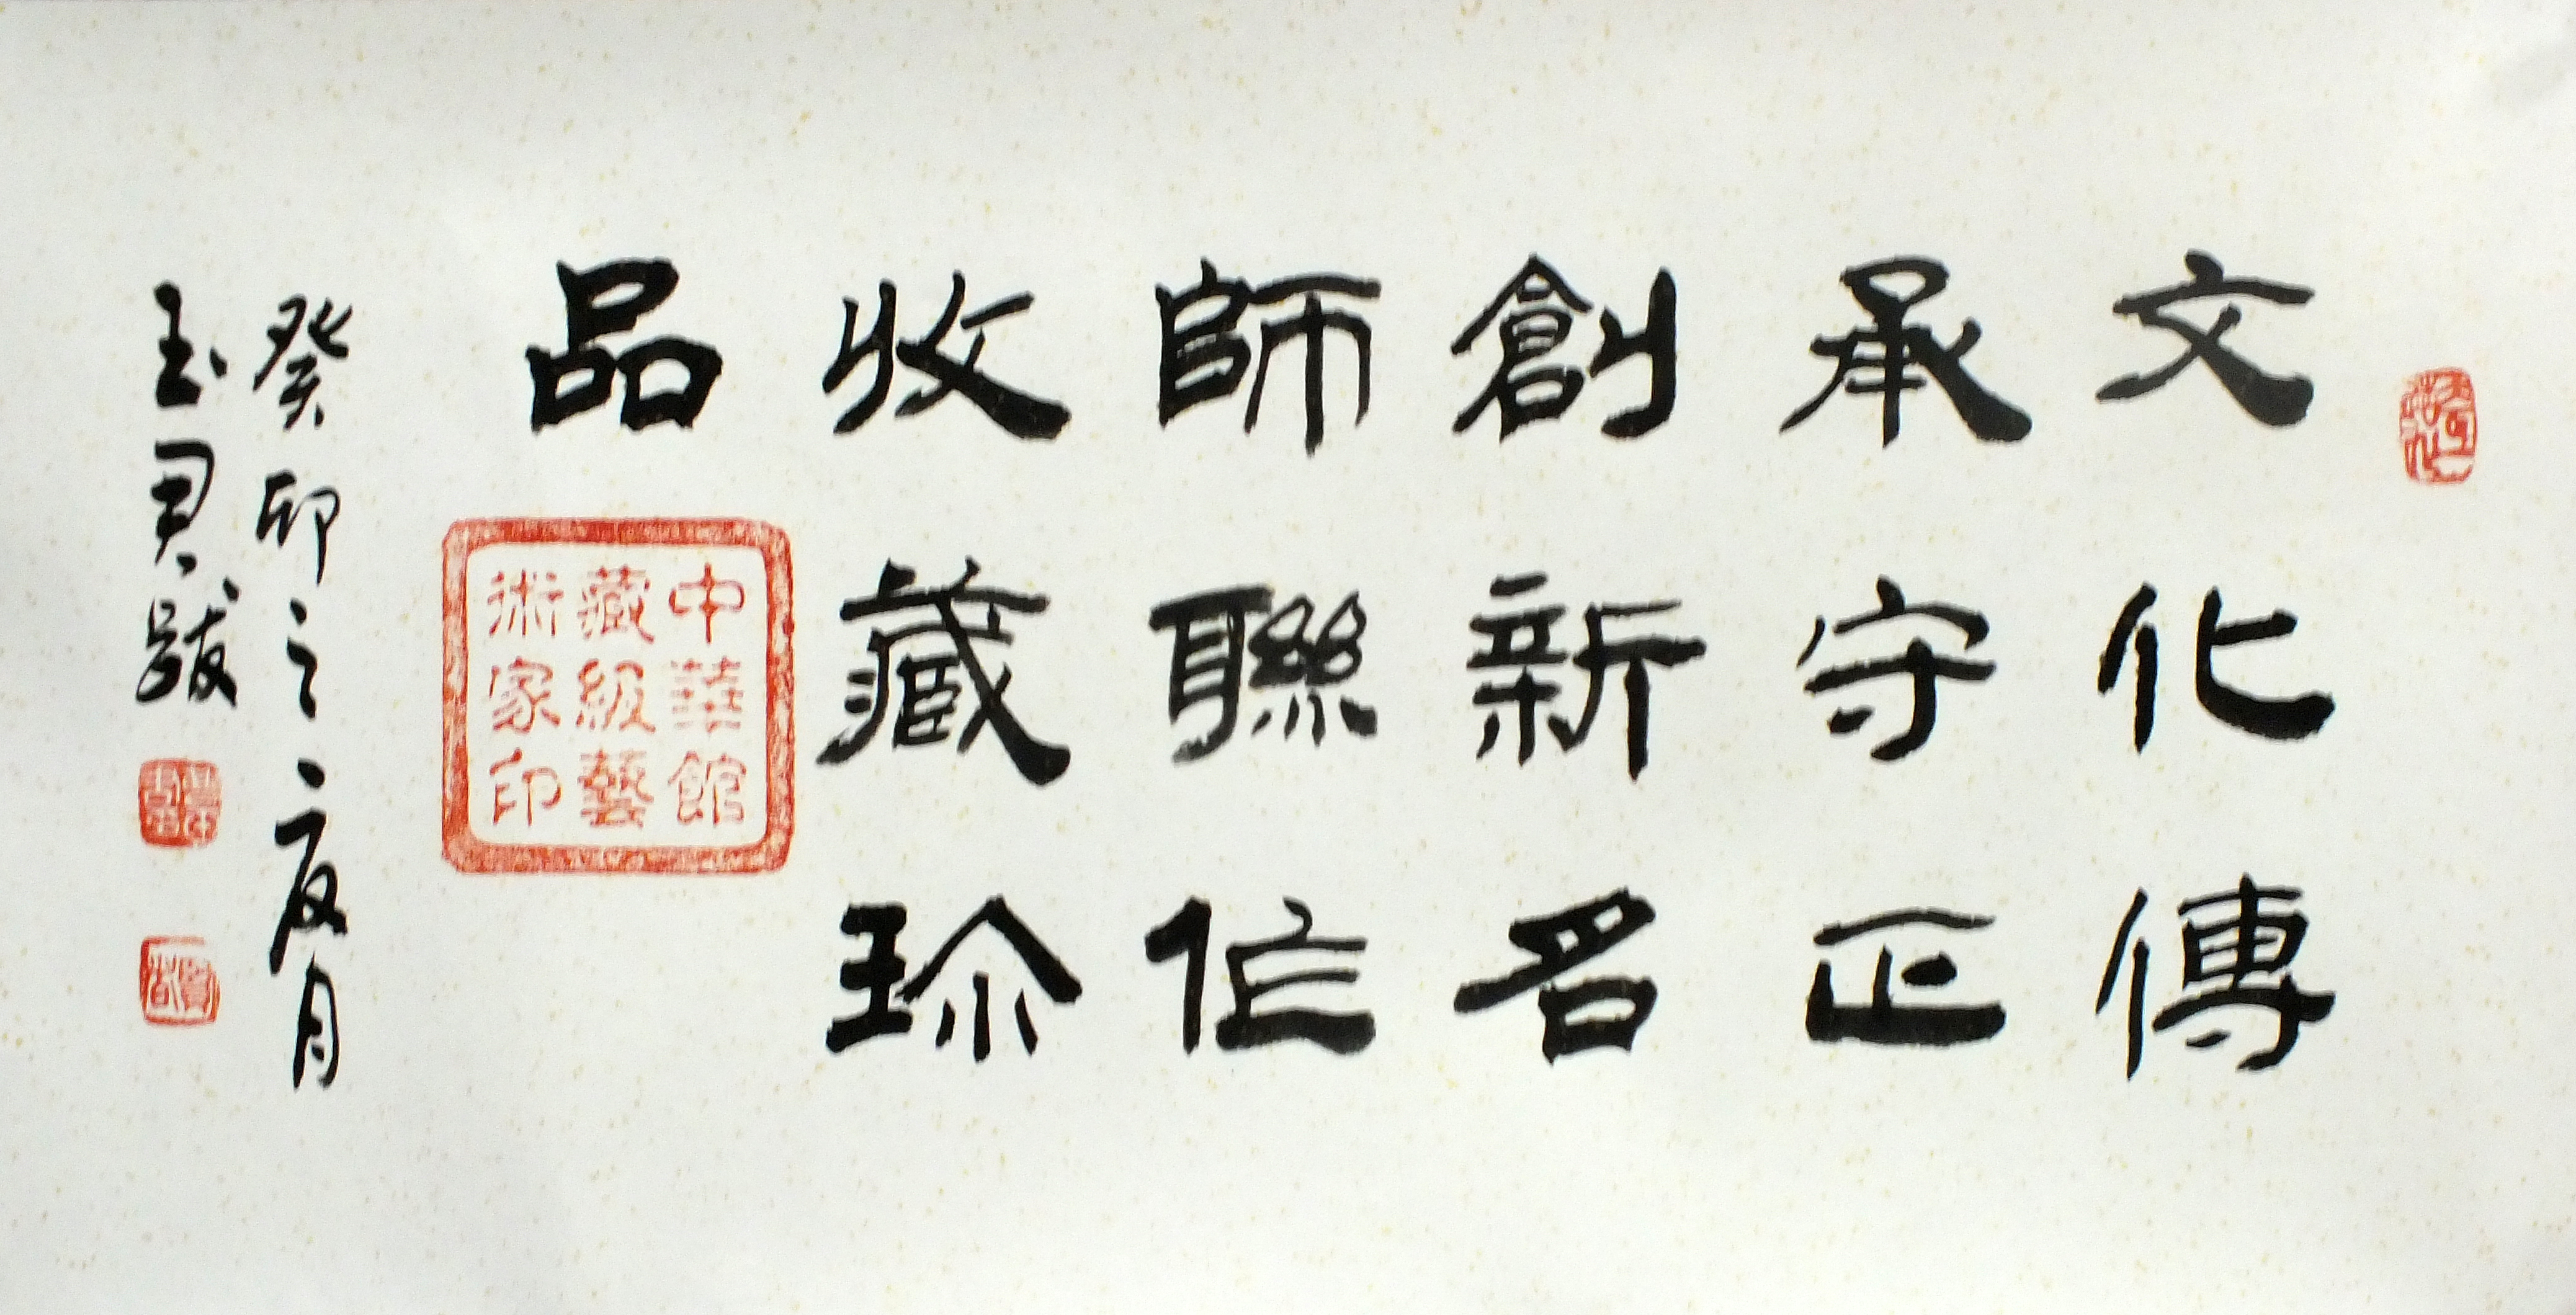 文化傳
承守正
創新名
師聯信
收藏珍
品
中華館
藏級藝
術家印
癸卯之夏月
玉君跋